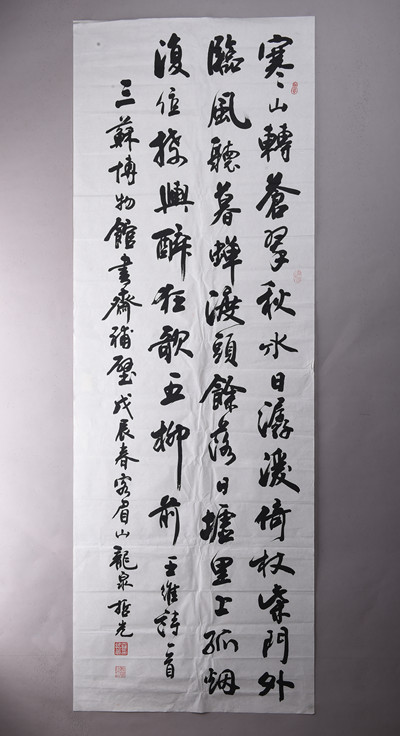 寒山轉蒼翠秋水日潺湲倚杖柴門外
臨風聽暮蟬渡頭餘落日墟里上孤烟
復值接輿醉狂歌五柳前 王維詩一首
三蘇博物館書齋補壁戊辰春客眉山龍泉 哲光